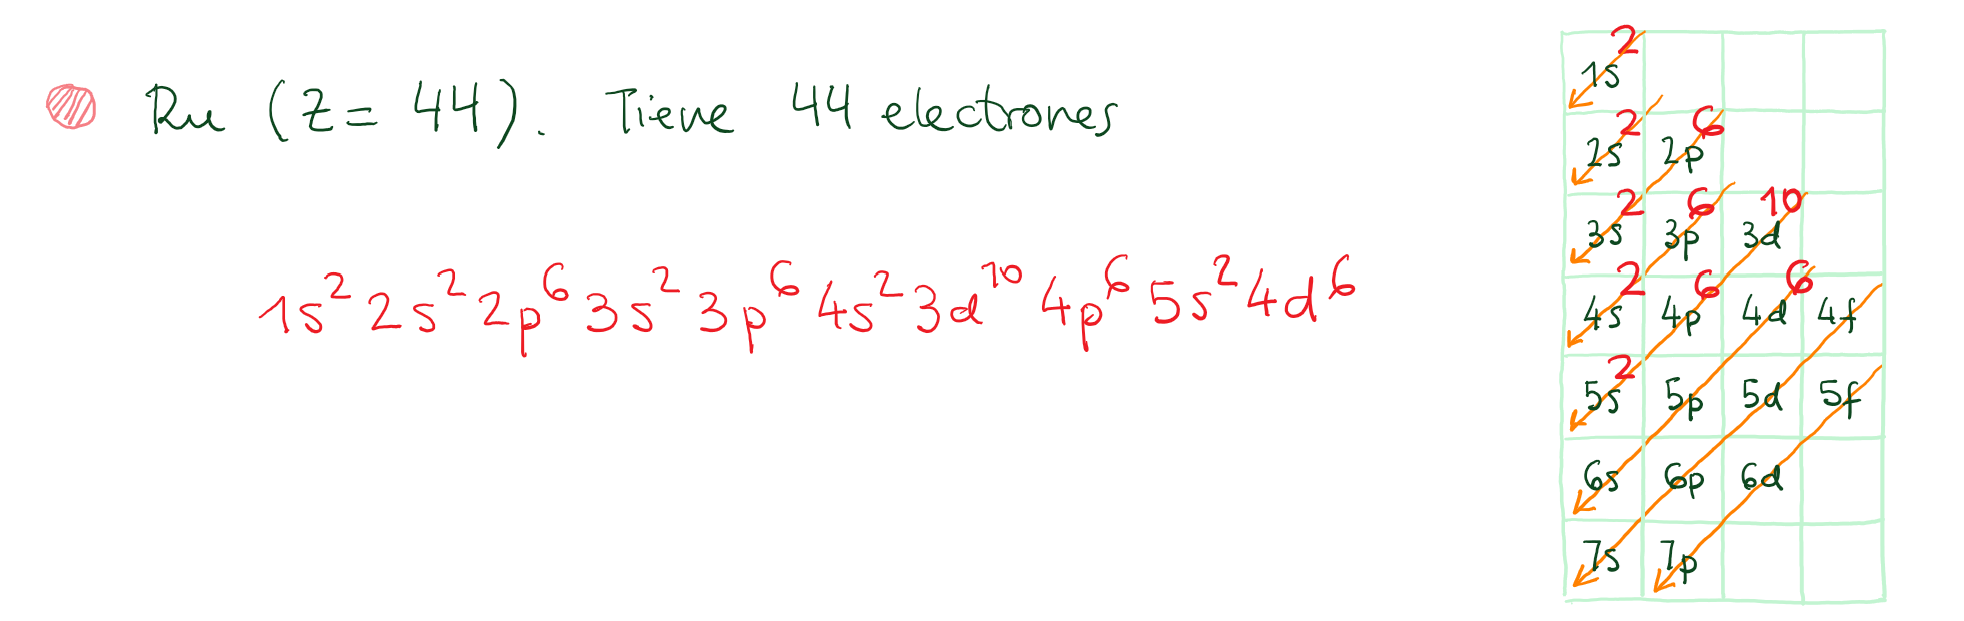 Ru (Z = 44). Tiene 44 electrones
1s² 2s² 2p⁶ 3s² 3p⁶ 4s² 3d¹⁰ 4p⁶ 5s² 4d⁶
1s²
2s² 2p⁶
3s² 3p⁶ 3d¹⁰
4s² 4p⁶ 4d⁶ 4f
5s² 5p 5d 5f
6s 6p 6d
7s 7p